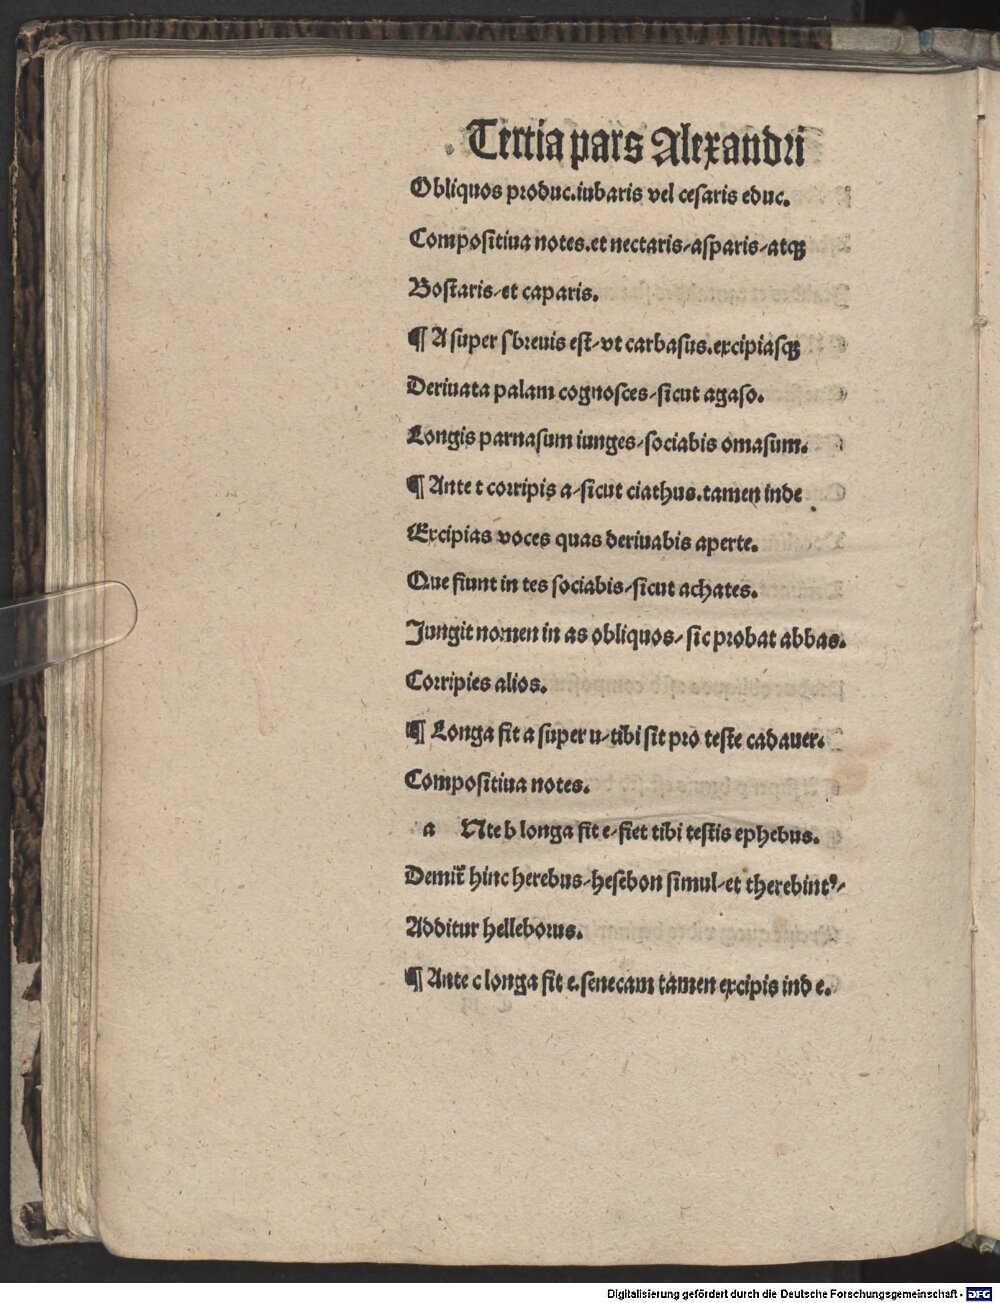 Tertia pars Alexandri
Obliquos produc.iubaris vel cesaris educ.
Compositiua notes.et nectaris/asparis/atqꝫ
Bostaris/et caparis.
¶ A super s breuis est/vt carbasus.excipiasqꝫ
Deriuata palam cognosces/sicut agaso.
Longis parnasum iunges/sociabis omasum.
¶ Ante t corripis a/sicut ciathus.tamen inde
Excipias voces quas deriuabis aperte.
Que fiunt in tes sociabis/sicut achates.
Jungit nomen in as obliquos/sic probat abbas.
Corripies alios.
¶ Longa fit a super u/tibi sit pro teste cadauer.
Compositiua notes.
a Nte b longa fit e/fiet tibi testis ephebus.
Demit̄ hinc herebus/hesebon simul/et therebintꝰ/
Additur helleborus.
¶ Ante c longa fit e.senecam tamen excipis ind e.
Digitalisierung gefördert durch die Deutsche Forschungsgemeinschaft - DFG